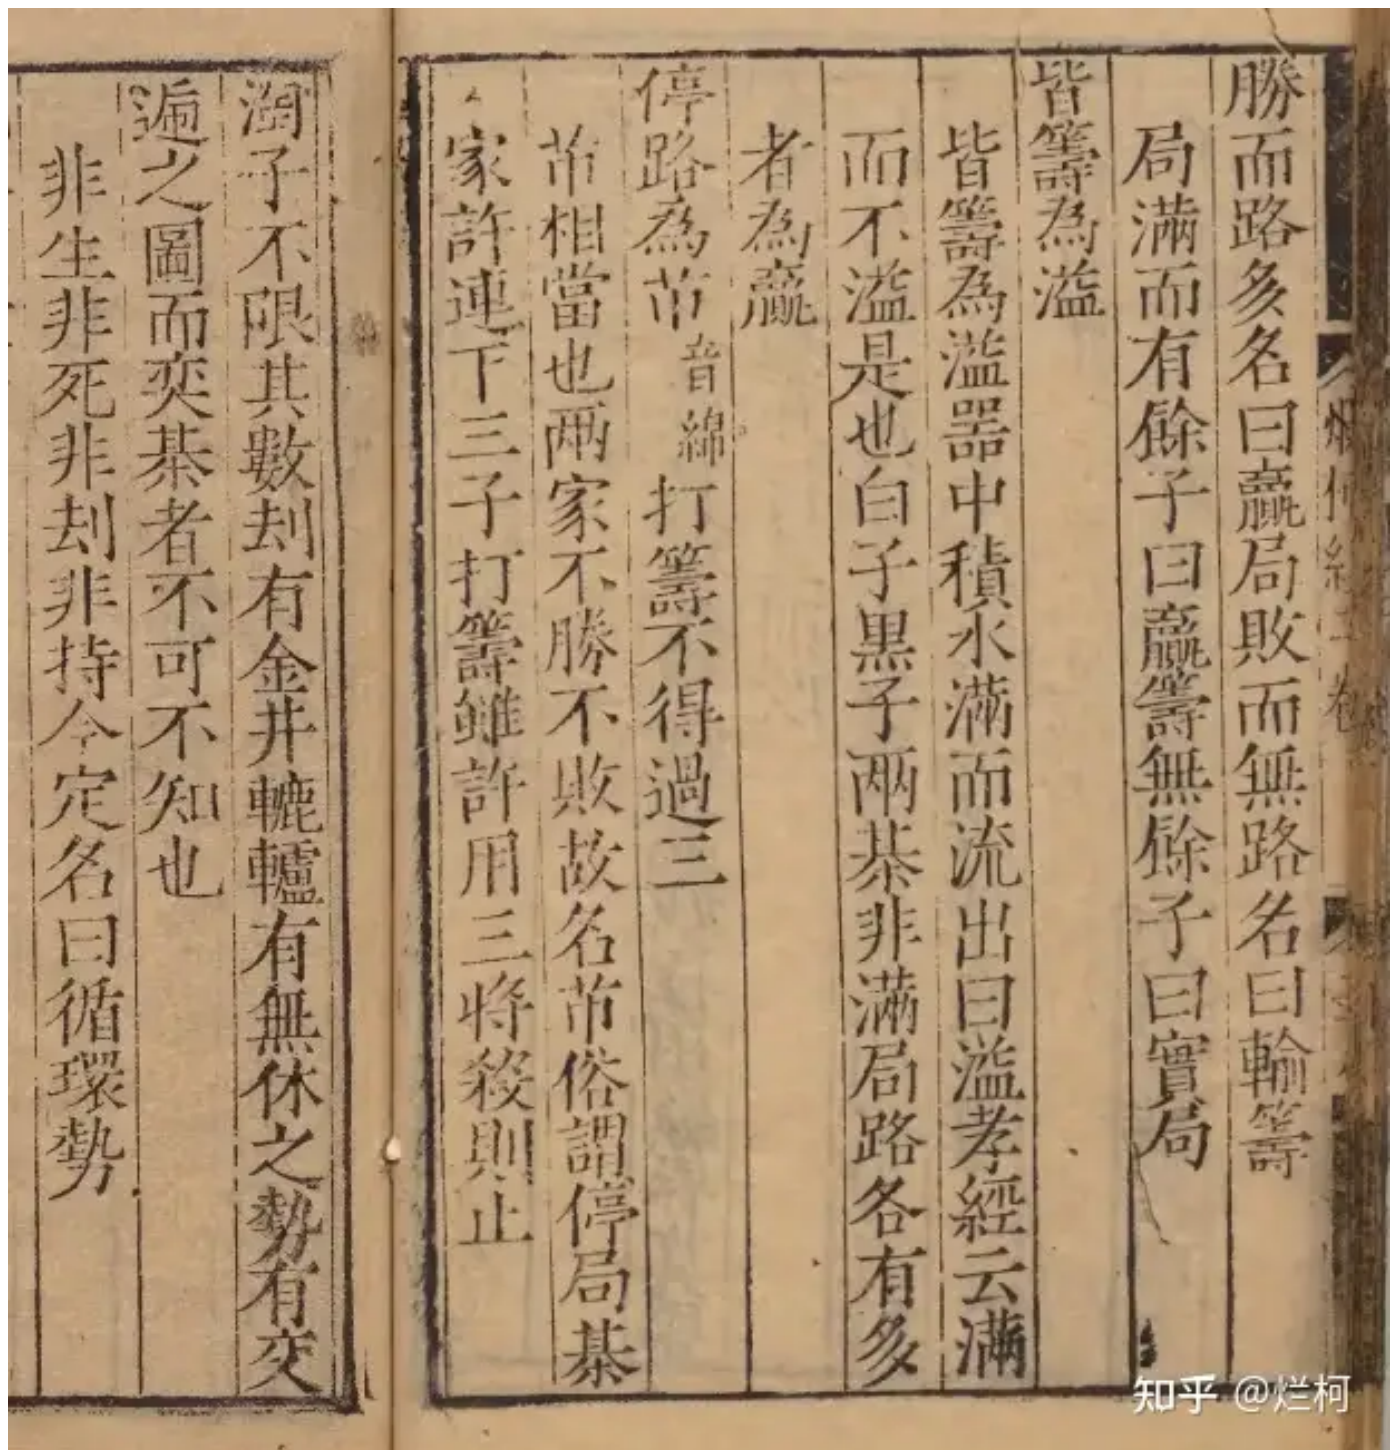 勝而路多名曰贏局敗而無路名曰輸籌
局滿而有餘子曰贏籌無餘子曰實局
皆籌為溢
皆籌為溢器中積水滿而流出曰溢孝經云滿
而不溢是也白子黑子兩棊非滿局路各有多
者為贏
停路為芇音綿打籌不得過三
芇相當也兩家不勝不敗故名芇俗謂停局棊
家許連下三子打籌雖許用三將殺則止
澗子不限其數刦有金井轆轤有無休之勢有交
遍之圖而奕棊者不可不知也
非生非死非刦非持今定名曰循環勢
知乎 @烂柯